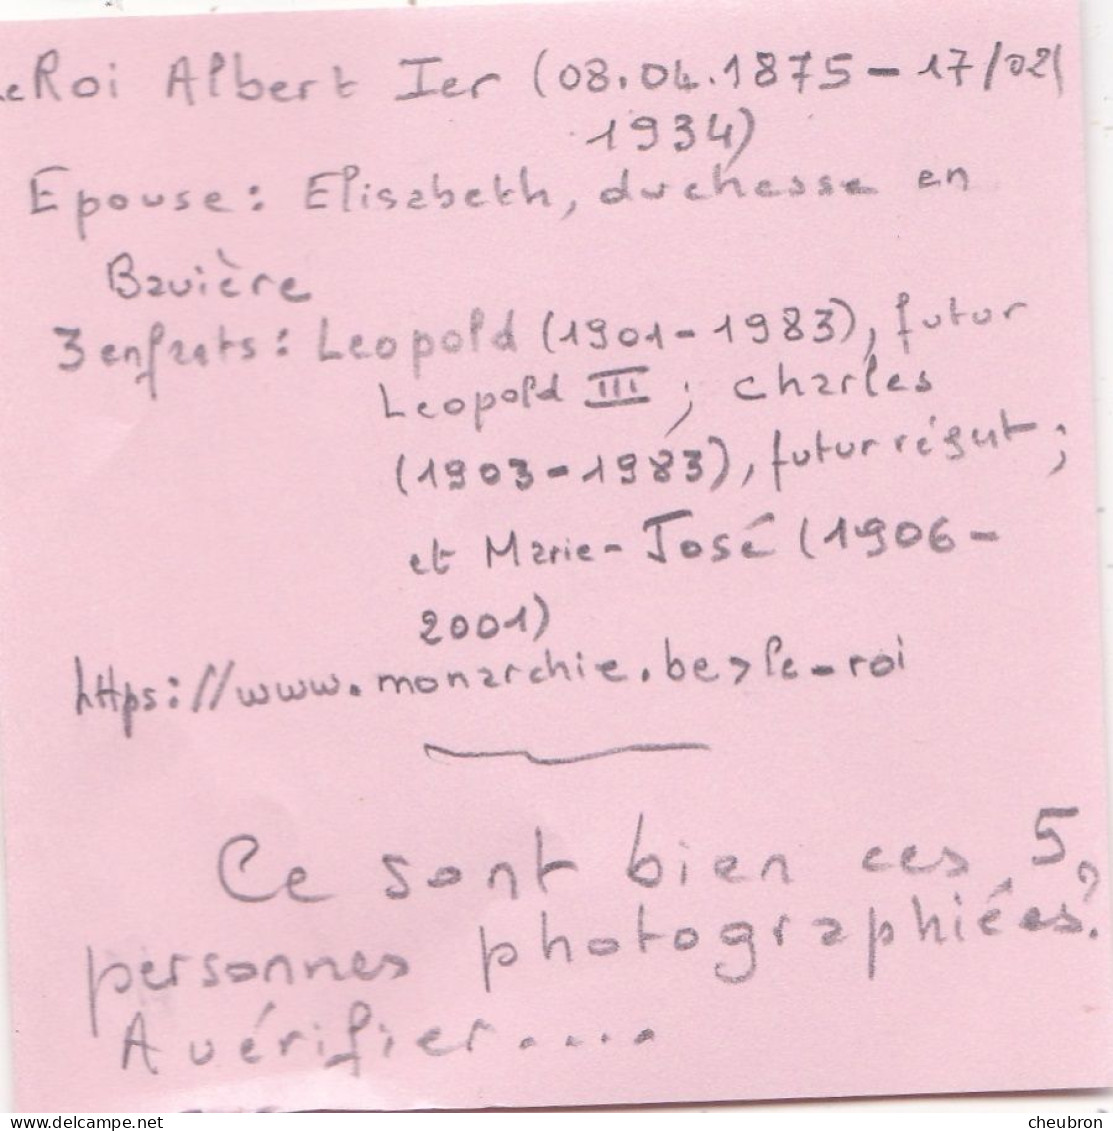 Le Roi Albert Ier (08.04.1875 - 17/02/
1934)
Epouse: Elisabeth, duchesse en
Bavière
3 enfants: Leopold (1901-1983), futur
Leopold III ; Charles
(1903-1983), futur régent ;
et Marie-José (1906-
2001)
https://www.monarchie.be>le-roi
Ce sont bien ces 5
personnes photographiées?
A vérifier....
cheubron